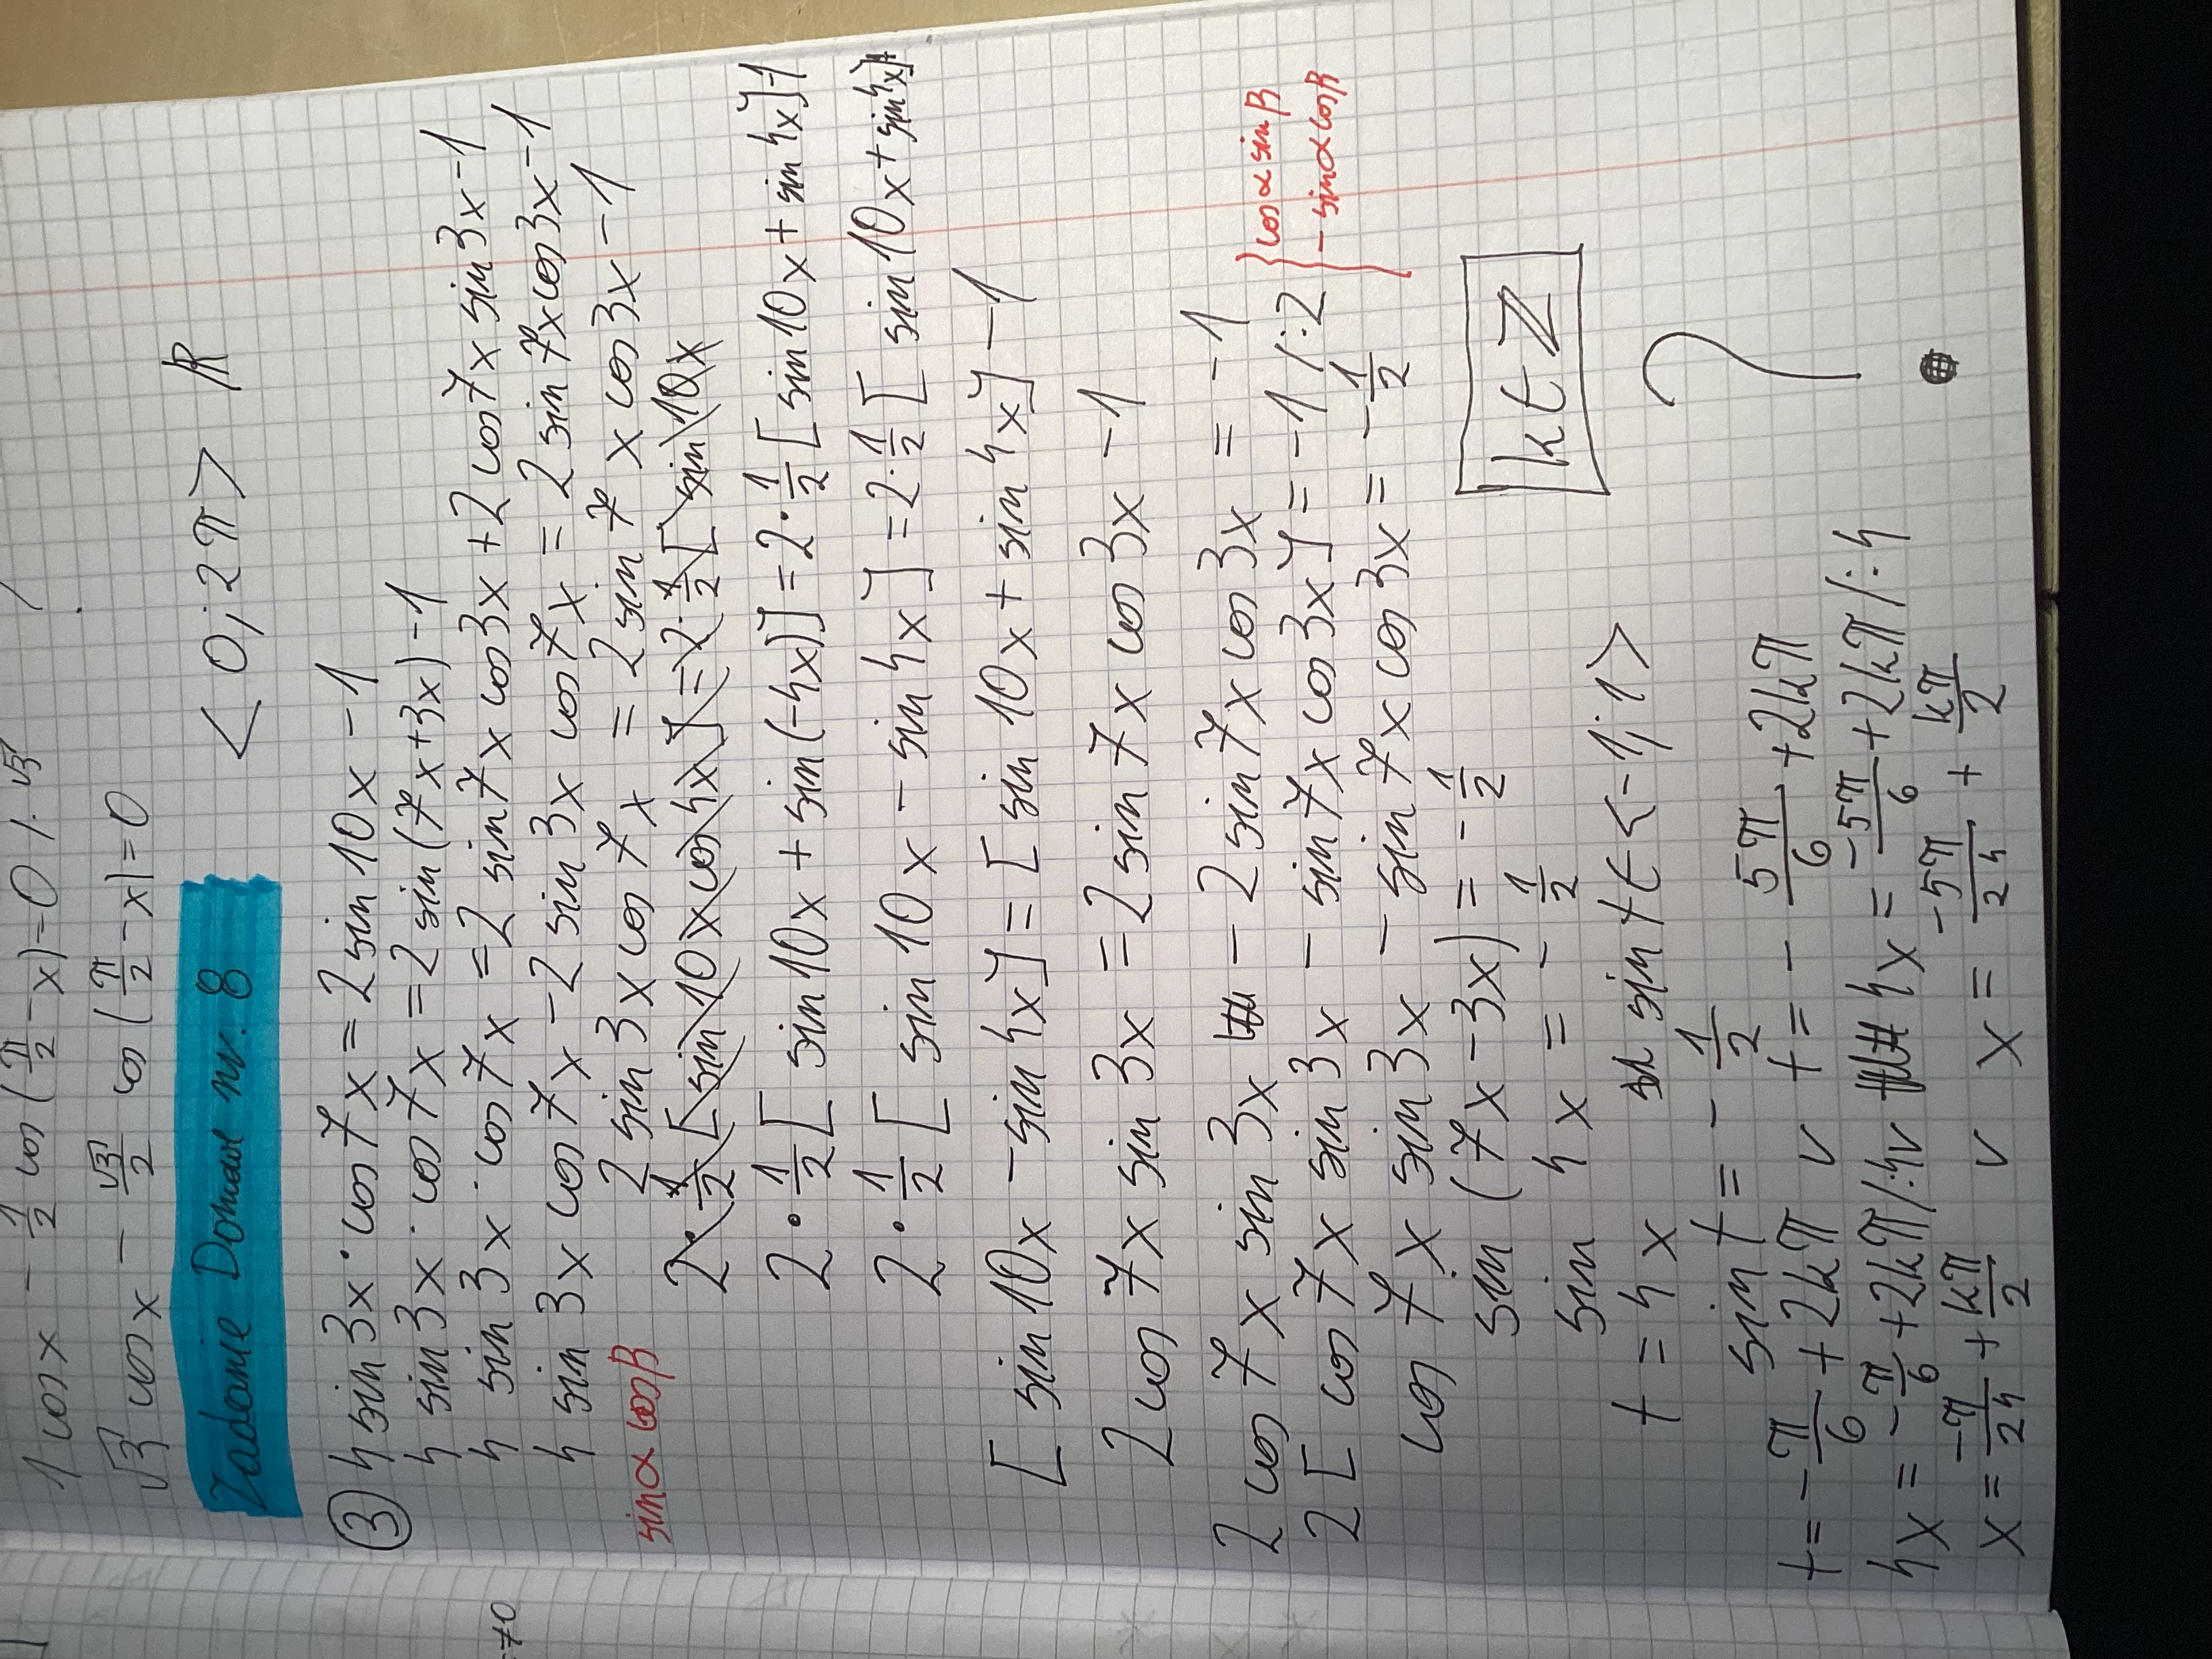 1 cosx - 1/2 cos(π/2 - x) = 0 /·√3
√3 cosx - √3/2 cos(π/2 - x) = 0
Zadanie Domowe nr. 8 <0; 2π> R
③ 4 sin3x · cos7x = 2 sin10x - 1
4 sin3x · cos7x = 2 sin(7x+3x) - 1
4 sin3x · cos7x = 2 sin7x cos3x + 2 cos7x sin3x - 1
4 sin3x cos7x - 2 sin3x cos7x = 2 sin7x cos3x - 1
sinα cosβ 2 sin3x cos7x = 2 sin7x cos3x - 1
2 · 1/2 [sin10x cos4x] = 2 · 1/2 [sin10x
2 · 1/2 [sin10x + sin(-4x)] = 2 · 1/2 [sin10x + sin4x] - 1
2 · 1/2 [sin10x - sin4x] = 2 · 1/2 [sin10x + sin4x] - 1
[sin10x - sin4x] = [sin10x + sin4x] - 1
2 cos7x sin3x = 2 sin7x cos3x - 1
2 cos7x sin3x - 2 sin7x cos3x = -1
2[cos7x sin3x - sin7x cos3x] = -1 /:2 } cosα sinβ
cos7x sin3x - sin7x cos3x = -1/2 } - sinα cosβ
sin(7x - 3x) = -1/2
sin 4x = -1/2
k∈Z
t = 4x sin t ∈ <-1; 1>
sin t = -1/2
?
t = -π/6 + 2kπ v t = -5π/6 + 2kπ
4x = -π/6 + 2kπ /:4 v 4x = -5π/6 + 2kπ /:4
x = -π/24 + kπ/2 v x = -5π/24 + kπ/2